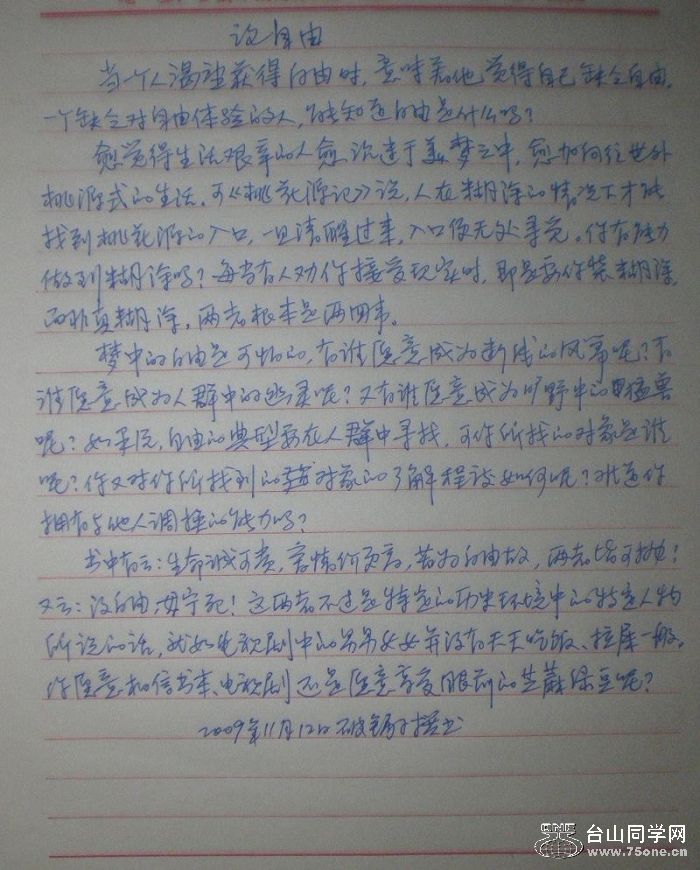 说自由
当一个人渴望获得自由时，意味着他觉得自己缺乏自由，
一个缺乏对自由体验的人，能知道自由是什么吗？
愈觉得生活艰辛的人愈沉迷于美梦之中，愈加向往世外
桃源式的生活。可《桃花源记》说，人在糊涂的情况下才能
找到桃花源的入口，一旦清醒过来，入口便无处寻觅。你有能力
做到糊涂吗？每当有人劝你接受现实时，即是要你装糊涂，
而非真糊涂，两者根本是两回事。
梦中的自由是可怕的，有谁愿意成为断线的风筝呢？有
谁愿意成为人群中的幽灵呢？又有谁愿意成为旷野中的猛兽
呢？如果说，自由的典型要在人群中寻找，可你所找的对象是谁
呢？你又对你所找到的对象的了解程度如何呢？难道你
拥有与他人调换的能力吗？
书中有云：生命诚可贵，爱情价更高，若为自由故，两者皆可抛！
又云：没自由，毋宁死！这两者不过是特定的历史环境中的特定人物
所说的话，就如电视剧中的男男女女并没有天天吃饭、拉屎一般。
你愿意相信书本、电视剧还是愿意享受眼前的芝麻绿豆呢？
2009年11月12日
台山同学网
www.75one.cn